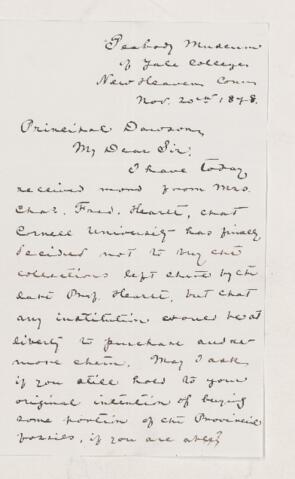 Peabody Museum
of Yale College,
New Haven, Conn
Nov. 20th 1878.
Principal Dawson,
My Dear Sir:
I have today
received word from Mrs.
Chas. Fred. Hartt, that
Cornell University has finally
decided not to buy the
collections left there by the
late Prof. Hartt, but that
any institution would be at
liberty to purchase and re-
move them. May I ask
if you still hold to your
original intention of buying
some portion of the Provincial
fossils, if you are able?